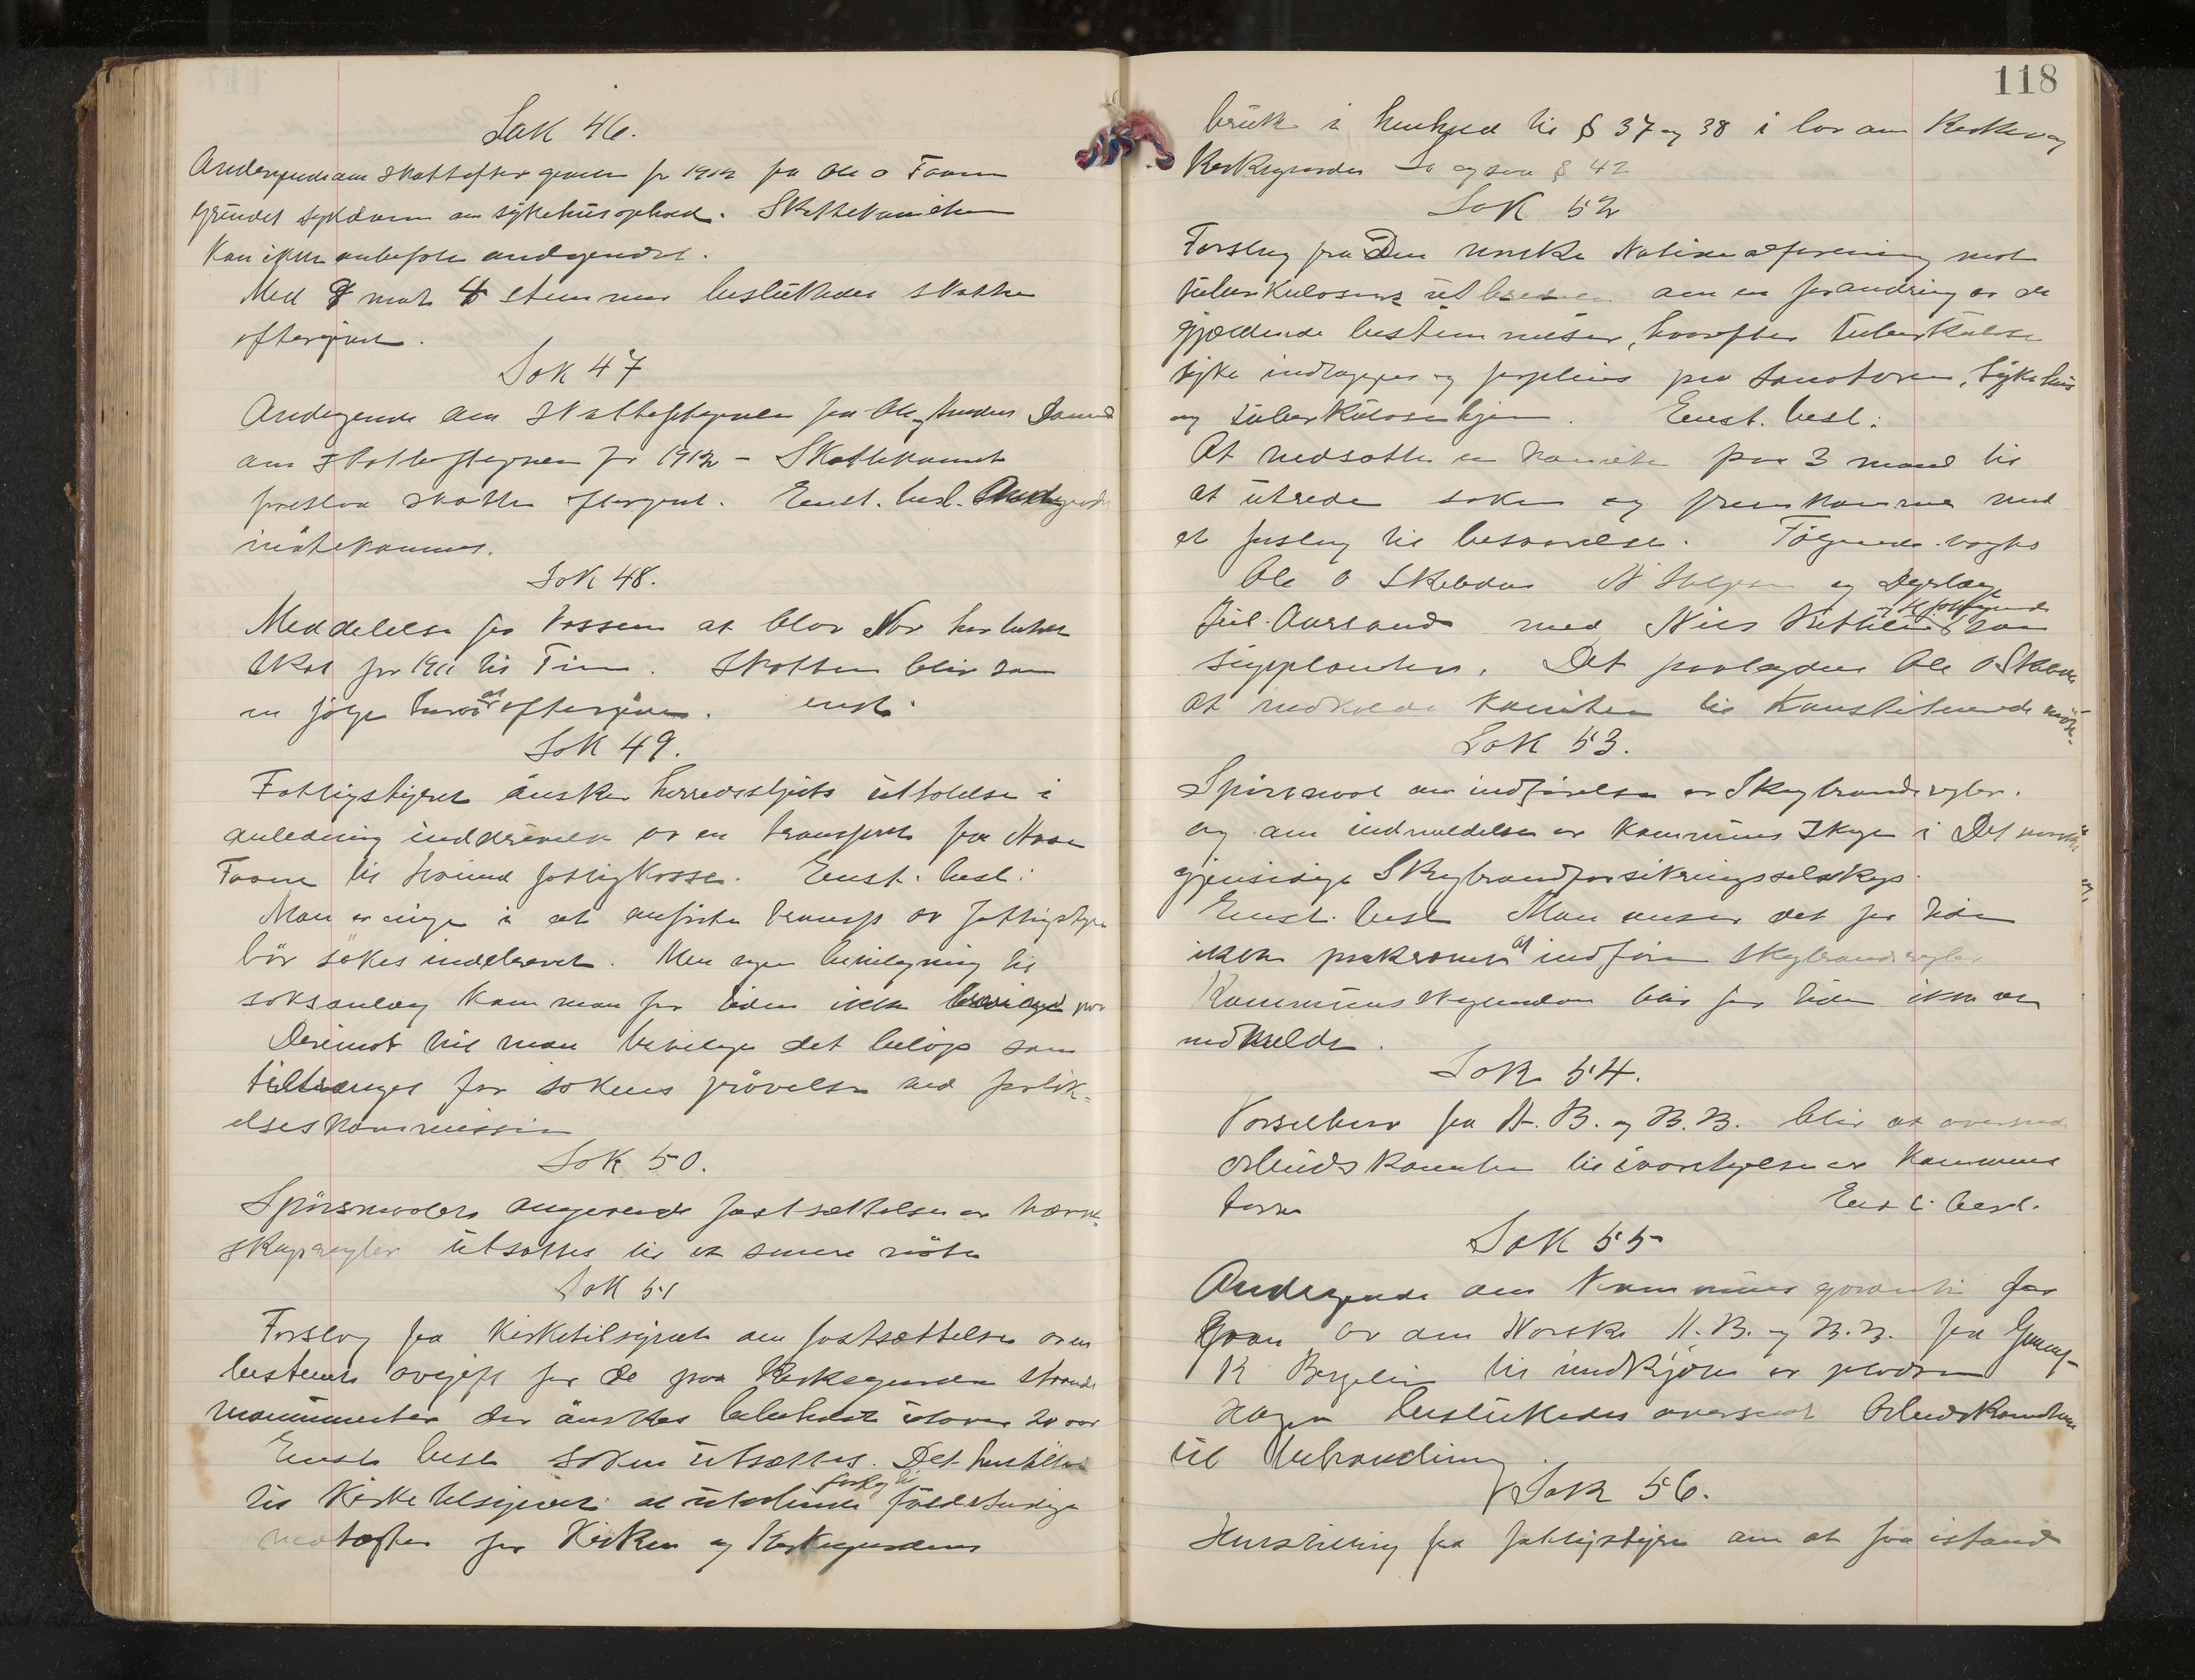 Sak 46.
Andragende om skatteftergivelse for 1912 fra Ole O Faann
grundet sykdom og sykehusophold. Skattekomiteen
kan ikke anbefale andragendet.
Med 9 mot 4 stemmer beslutkedes skatten
eftergivet.
Sak 47
Andragende om skatteftergivelse fra Ole og Anders
om skatteftergivelse for 1912 - Skattekomit
foreslaar skatten eftergivet. Enst. besl. Andragende
imötekommes.
Sak 48.
Meddelelse fra kassern at Olav har betalt
skat for 1911 til Tinn. Skatten blir som
en følge herav at eftergives. enst.
Sak 49.
Fattigstyret ønsker herredsstyrets uttalelse i
anledning inddrivelse av en transport fra Aase
Faann til fattigkasse. Enst. besl:
Man er enige i at anførte transp av fattigstyre
bör søkes inddrevet. Men nogen bevilgning til
saksanlæg kan man for tiden ikke
Derimot vil man bevilge det beløp som
tiltrænges for sakens prøvelse ved forlik-
elseskommission
Sak 50.
Spörsmaalet angaaende fastsættelse av
skapsregler utsættes til et senere möte
Sak 51
Forslag fra Kirketilsynet om fastsættelse av en
bestemt avgift for de paa Kirkegaarden staaende
monumenter der ønskes beholdt utover 20 aar
Enst. besl. saken utsættes. Det henstilles
til Kirketilsynet at utarbeide forslag til fuldstendige
vedtægter for Kirken og Kirkegaardens
118
bruk i henhold til § 37 og 38 i lov om Kirker og
Kirkegaarder Se ogsaa § 42
Sak 52
Forslag fra Den norske Nationalforening mot
tuberkulosens utbredelse om en forandring av de
gjældende bestemmelser, hvorefter tuberkuløse
syke indlægges og forpleies paa sanatorier, sykehus
og tuberkulosehjem. Enst. besl:
At nedsætte en komite paa 3 mand til
at utrede saken og fremkomme med
et forslag til besvarelse. Følgende valgtes
Ole O Skeldar og Dyrlæge
Jul. Aarsand med Nils som
supplanter. Det paalægges Ole O Skeldar
at nedkalde komiteen til konstituerende möte.
Sak 53.
Spörsmaal om indförelse av Skogbrandregler.
og om indmeldelse av kommunens Skoger i Det norske
gjensidige Skogbrandforsikringsselskap.
Enst. besl. Man anser det for tiden
ikke paakrævet at indføre skogbrandregler
Kommuneskogene blir for tiden ikke at
indmelde.
Sak 54.
Varselbrev fra H. B. og B.B. blir at oversende
Arbeidskomiteen til ivaretagelse av kommunens
tarv Enst. besl.
Sak 55
Andragende om Kommunens garanti for
laan av den Norske A. B. og B.B. fra Gunnf-
K til indkjøb av
hagen beslutkedes oversendt Arbeidskomiteen
til behandling.
Sak 56.
Henstilling fra fattigstyre om at faa istand